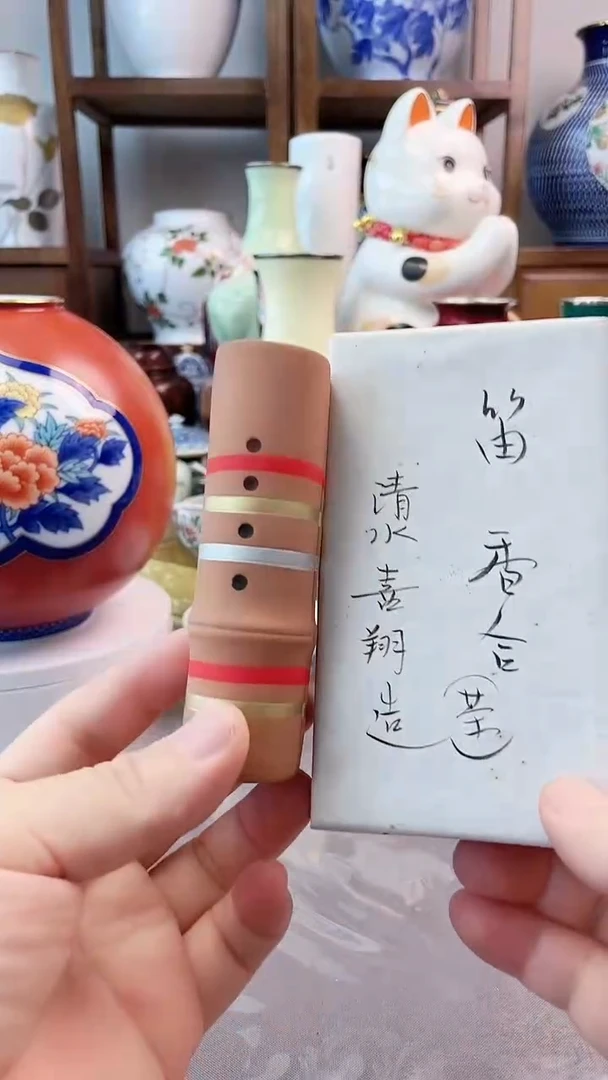 笛 香合(茶)
清水 喜翔造